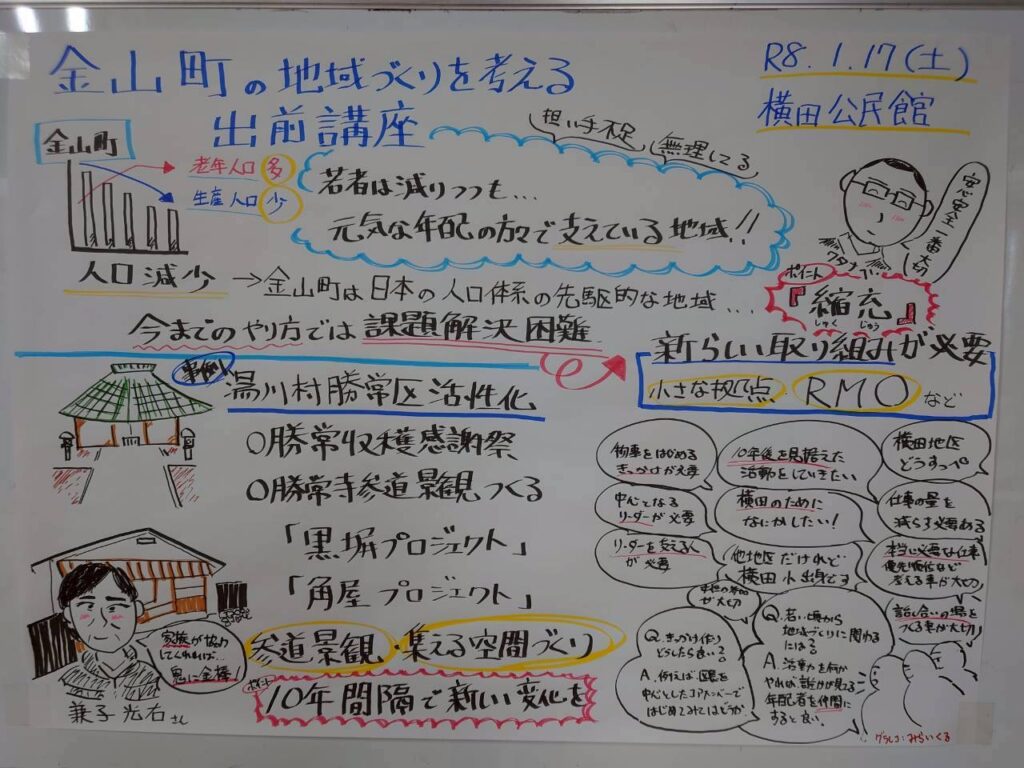 金山町の地域づくりを考える
出前講座
R8. 1. 17(土)
横田公民館
金山町
老年人口 多
生産人口 少
担い手不足
無理してる
若者は減りつつも…
元気な年配の方々で支えている地域!!
安心安全一番大切
人口減少 →金山町は日本の人口体系の先駆的な地域…
ポイント
『縮充』
しゅく じゅう
今までのやり方では課題解決困難
新らしい取り組みが必要
小さな拠点・RMOなど
事例
湯川村勝常区活性化
○勝常収穫感謝祭
○勝常寺参道景観つくる
「黒塀プロジェクト」
「角屋プロジェクト」
参道景観・集える空間づくり
ポイント
10年間隔で新しい変化を
家族が協力
してくれれば…
鬼に金棒
兼子 光右さん
物事をはじめる
きっかけが必要
10年後を見据えた
活動をしていきたい
横田地区
どうすっぺ
中心となる
リーダーが必要
横田のために
なにかしたい!
仕事の量を
減らす必要ある
リーダーを支える人
が必要
他地区だけれど
横田小出身です
本当に必要な仕事
優先順位など
考える事が大切
話し合いの場を
つくる事が大切
が大切
Q.きっかけ作り
どうしたら良い?
A.例えば区長を
中心としたコアメンバーで
はじめてみてはどうか
Q.若い頃から
地域づくりに関わる
には
A.活動を何か
やれば誰かが見てる
年配者を仲間に
すると良い。
グラレコ:みらいくる